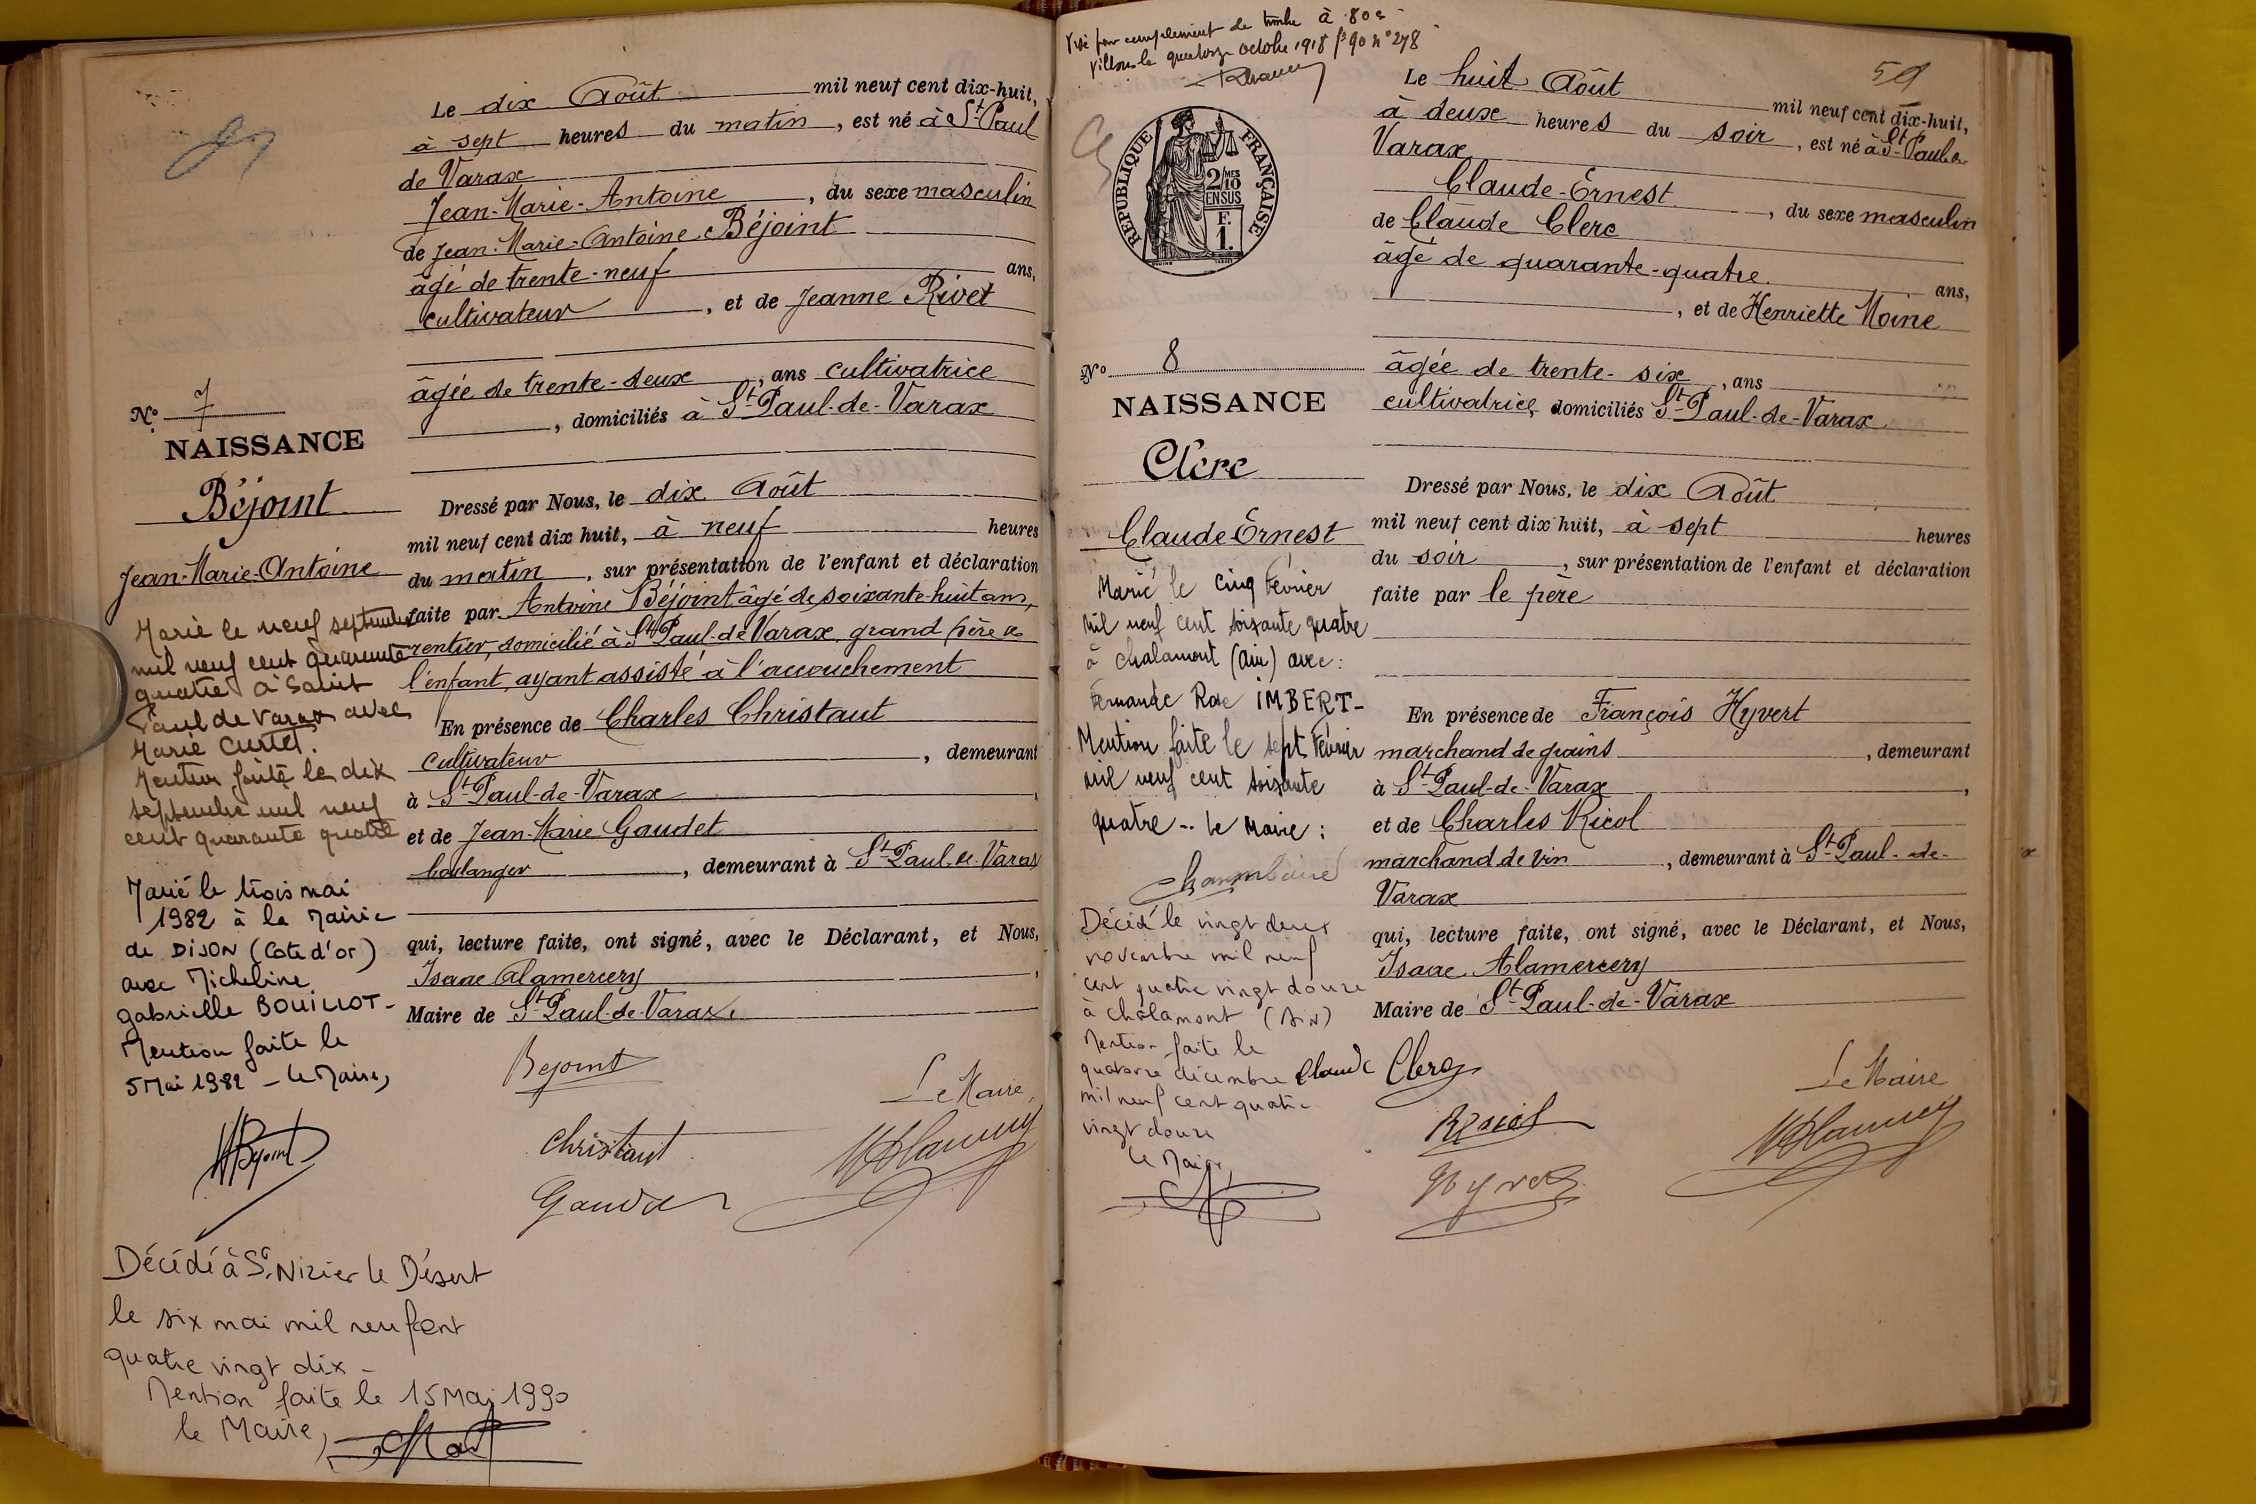 Le dix Août mil neuf cent dix-huit,
à sept heures du matin, est né à St-Paul
de Varax
Jean-Marie-Antoine, du sexe masculin
de Jean-Marie-Antoine Béjoint
âgé de trente-neuf ans,
cultivateur, et de Jeanne Rivet
âgée de trente-deux, ans cultivatrice
, domiciliés à St-Paul-de-Varax
No 7
NAISSANCE
Béjoint
Jean-Marie-Antoine
Dressé par Nous, le dix Août
mil neuf cent dix huit, à neuf heures
du matin, sur présentation de l'enfant et déclaration
faite par Antoine Béjoint âgé de soixante-huit ans,
rentier, domicilié à St Paul-de Varax, grand père de
l'enfant, ayant assisté à l'accouchement
En présence de Charles Christaut
cultivateur, demeurant
à St-Paul-de-Varax,
et de Jean-Marie Gaudet
boulanger, demeurant à St-Paul-de-Varax
qui, lecture faite, ont signé, avec le Déclarant, et Nous,
Isaac Alamercery,
Maire de St-Paul-de-Varax.
Marié le neuf septembre
mil neuf cent quarante
quatre à Saint
Paul de Varax avec
Marie Curtet.
Mention faite le dix
septembre mil neuf
cent quarante quatre
Marié le trois mai
1982 à la Mairie
de DIJON (Cote d'or)
avec Micheline
Gabrielle BOUILLOT-
Mention faite le
5 Mai 1982 - Le Maire,
Bejoint
Le Maire,
Christaut
Gaudet
Décédé à St Nizier le Désert
le six mai mil neuf cent
quatre vingt dix -
Mention faite le 15 Mai 1990
le Maire,
Visé pour complément de timbre à .80c
Villars le quatorze octobre 1918 fo 90 no 278
59
RÉPUBLIQUE FRANÇAISE
2/MES
10
EN SUS
F.
1.
Le huit Août mil neuf cent dix-huit,
à deux heures du soir, est né à St-Paul-de
Varax
Claude-Ernest, du sexe masculin
de Claude Clerc
âgé de quarante-quatre ans,
, et de Henriette Moine
âgée de trente-six, ans
cultivatrice, domiciliés St-Paul-de-Varax
No 8
NAISSANCE
Clerc
Claude Ernest
Dressé par Nous, le dix Août
mil neuf cent dix huit, à sept heures
du soir, sur présentation de l'enfant et déclaration
faite par le père
En présence de François Hyvert
marchand de grains, demeurant
à St-Paul-de-Varax,
et de Charles Ricol
marchand de vin, demeurant à St-Paul-de-
Varax
qui, lecture faite, ont signé, avec le Déclarant, et Nous,
Isaac Alamercery
Maire de St-Paul-de-Varax
Marié le cinq Février
mil neuf cent soixante quatre
à Chalamont (Ain) avec :
Fernande Rose IMBERT-
Mention faite le sept Février
mil neuf cent soixante
quatre -. Le Maire :
Décédé le vingt deux
novembre mil neuf
cent quatre vingt douze
à Chalamont (Ain)
Mention faite le
quatorze décembre
mil neuf cent quatre
vingt douze
Le Maire,
Claude Clerc
Le Maire
Ricol
Hyvert